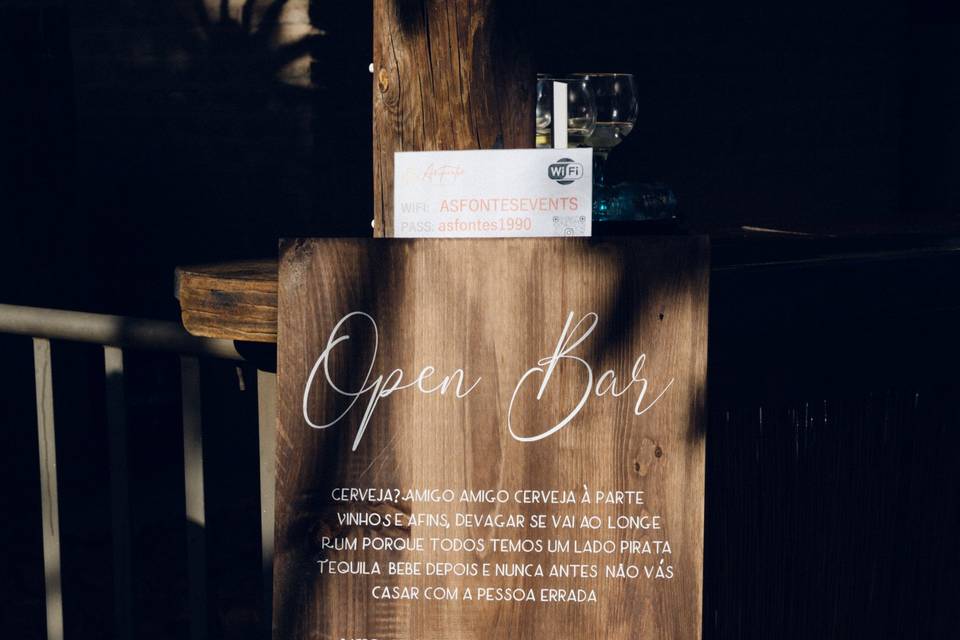 WiFi
WIFI: ASFONTESEVENTS
PASS: asfontes1990
Open Bar
CERVEJA? AMIGO AMIGO CERVEJA À PARTE
VINHOS E AFINS, DEVAGAR SE VAI AO LONGE
RUM PORQUE TODOS TEMOS UM LADO PIRATA
TEQUILA BEBE DEPOIS E NUNCA ANTES NÃO VÁS
CASAR COM A PESSOA ERRADA